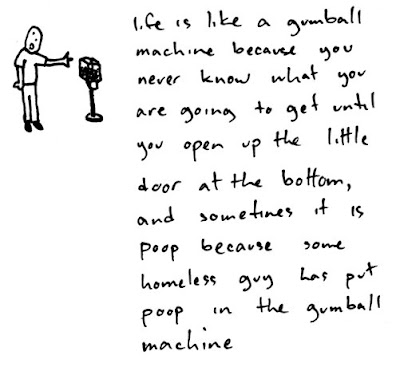 life is like a gumball
machine because you
never know what you
are going to get until
you open up the little
door at the bottom,
and sometimes it is
poop because some
homeless guy has put
poop in the gumball
machine